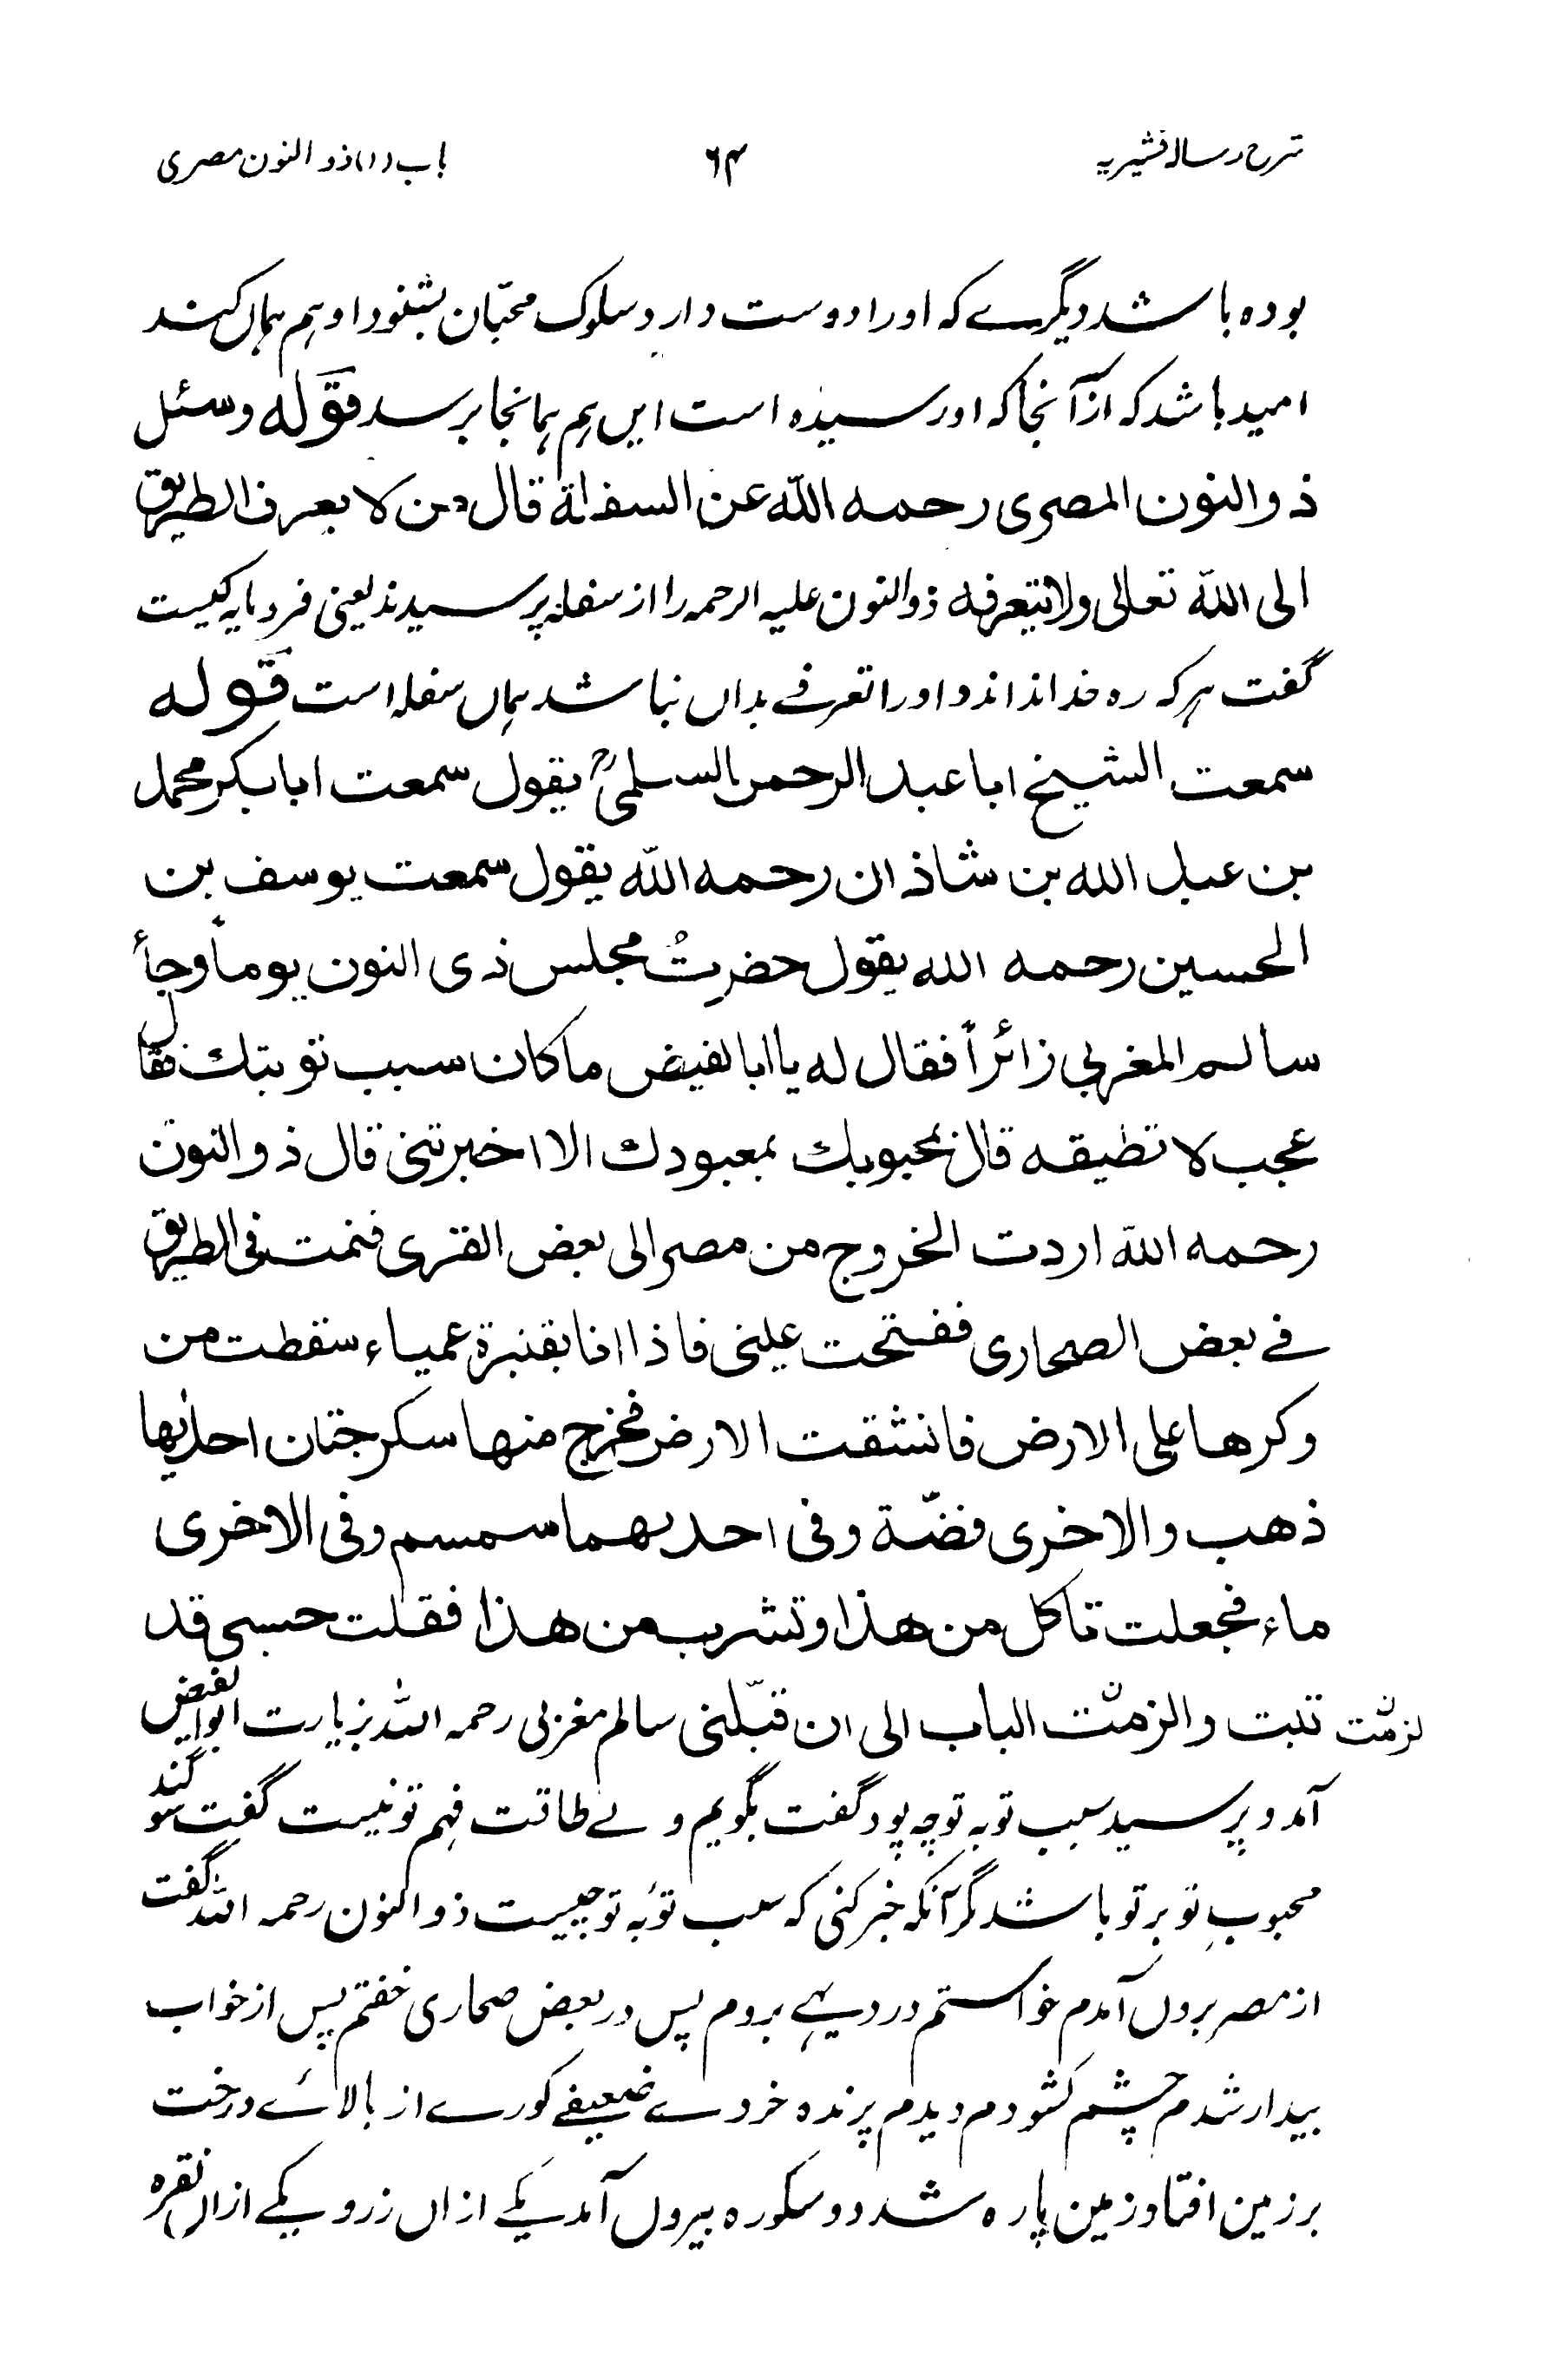 شرح رسالہ قشیریہ ۶۴ باب (۱) ذو النون مصری
بوده باشد دیگرے که اورا دوست دارد سلوک محبّان بشنود او هم همال کند
امید باشد که از آنجا که او رسیده است ایں هم همانجا برسد قوله وسئل
ذو النون المصری رحمه اللّه عن السفلة قال من لا یعرف الطریق
الی اللّه تعالی ولا یتعرفه ذو النون علیه الرحمه را از سفله پرسیدند یعنی فرومایه کیست
گفت هر که ره خدا نداند و اورا تعرفے بداں نباشد هماں سفله است قوله
سمعت الشیخ ابا عبد الرحمن السلمیؒ یقول سمعت ابا بکر محمد
بن عبد الله بن شاذان رحمه اللّه یقول سمعت یوسف بن
الحسین رحمه الله یقول حضرتُ مجلس ذی النون یوماً وجاء
سالم المغربی زائراً فقال له یا ابا الفیض ما کان سبب توبتك فقال
عجب لا تطیقه قال بمحبوبك بمعبودك الا اخبرتنی قال ذو النون
رحمه اللّه اردت الخروج من مصر الی بعض القری فنمت فی الطریق
فے بعض الصحاری ففتحت عینی فاذا انا بقنبرة عمیاء سقطت من
وکرها علی الارض فانشقت الارض فخرج منها سکرجتان احدٰیها
ذهب والاخری فضّة وفی احدیهما سمسم وفی الاخری
ماء فجعلت تاکل من هذا وتشرب من هذا فقلت حسبی قد
تبت والزمت الباب الی ان قبّلنی سالم مغربی رحمه اللّه بزیارت ابوالفیض
لزمت
آمد و پرسید سبب توبه تو چه بود گفت بگویم ولے طاقت فهم تو نیست گفت سوگند
محبوبِ تو بر تو باشد مگر آنکه خبر کنی که سبب توبۂ تو چیست ذو النون رحمه اللّه گفت
از مصر بروں آمدم خواستم در دیهے بروم پس در بعض صحاری خفتم پس از خواب
بیدار شدم چشم کشودم دیدم پرنده خردے ضعیفے کورے از بالاے درخت
بر زمین افتاد زمین پاره شد دو سکوره بیروں آمد یکے ازاں زر و یکے ازاں نقره